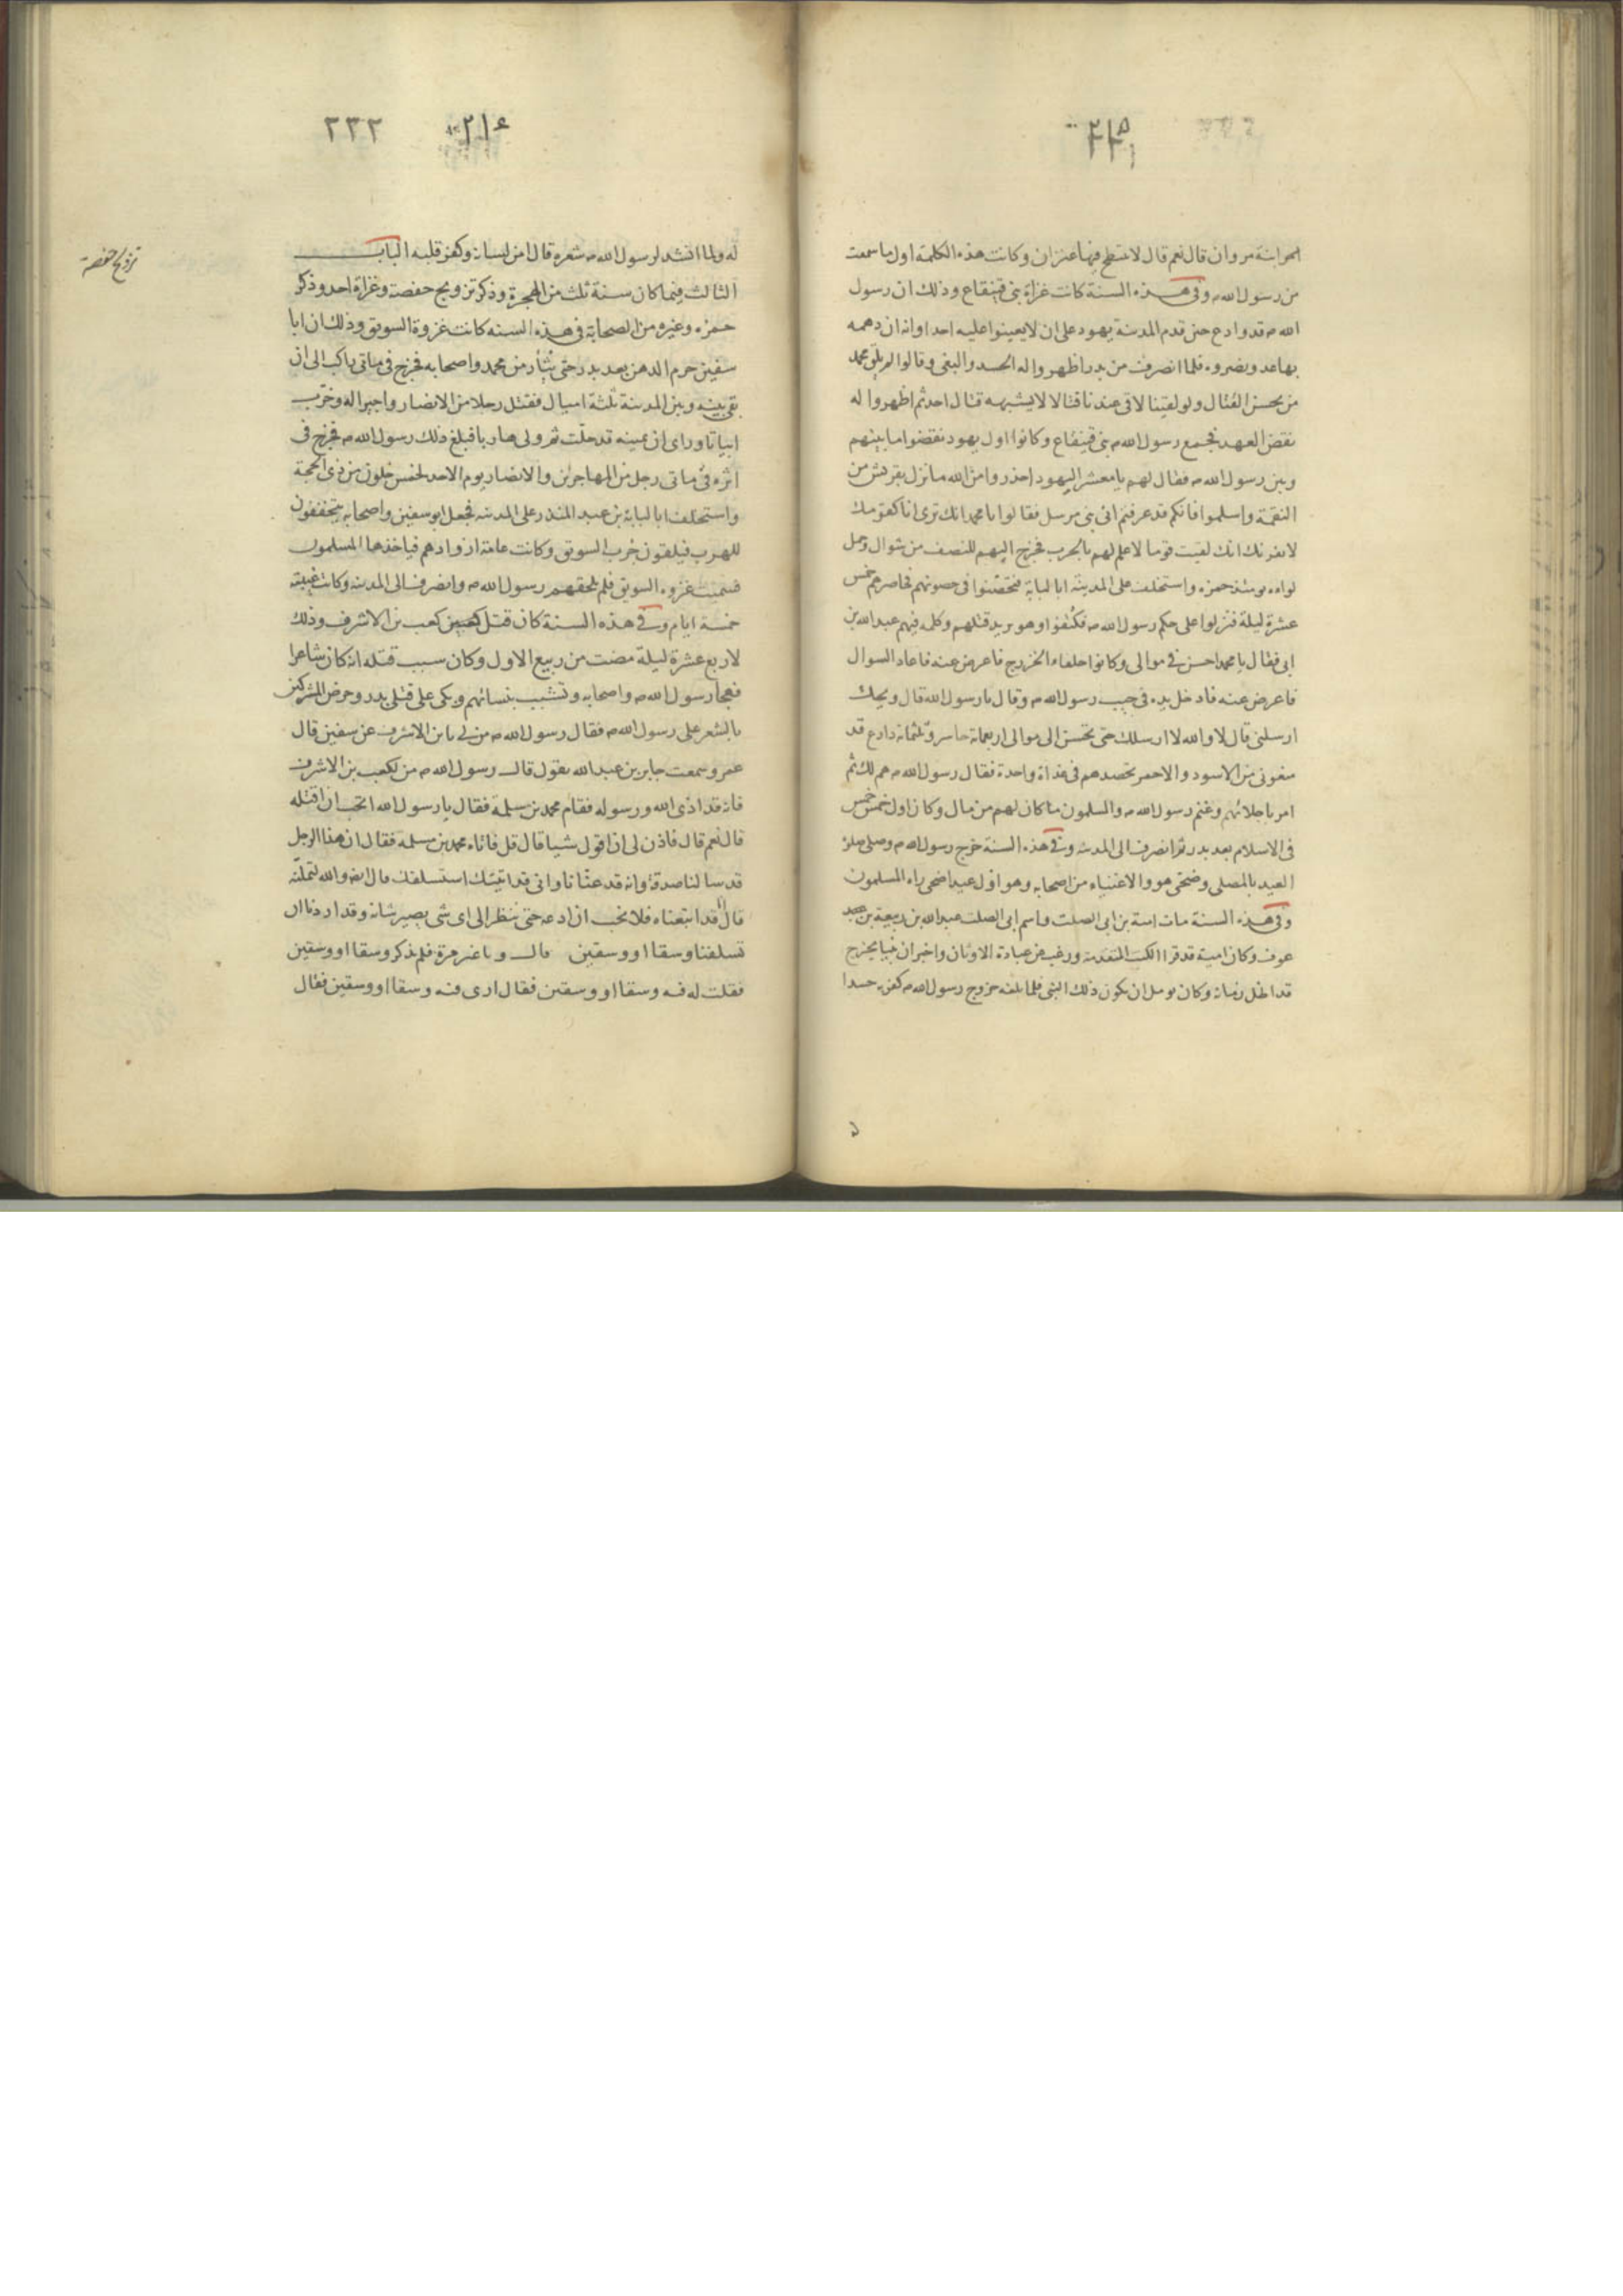 ٢١٥
امرانة مروان قال نعم قال لا ينتطح فيها عنزان وكانت هذه الكلمة اول ما سمعت
من رسول الله ص وفى هذه السنة كانت غزاة بنى قينقاع وذلك ان رسول
الله ص قد وادع حين قدم المدينة يهود على ان لا يعينوا عليه احدا وانه ان دهمه
بها عدو نصروه فلما انصرف من بدر اظهروا له الحسد والبغى وقالوا لم يلق محمد
من يحسن القتال ولو لقينا لاقى عندنا قتالا لا يشبهه قتال احد ثم اظهروا له
نقض العهد فجمع رسول الله ص بنى قينقاع وكانوا اول يهود نقضوا ما بينهم
وبين رسول الله ص فقال لهم يا معشر اليهود احذروا من الله ما نزل بقريش من
النقمة واسلموا فانكم قد عرفتم انى نبى مرسل فقالوا يا محمد انك ترى انا كقومك
لا يغرنك انك لقيت قوما لا علم لهم بالحرب فخرج اليهم للنصف من شوال وحمل
لواءه يومئذ حمزه واستخلف على المدينة ابا لبابة فتحصنوا فى حصونهم فحاصرهم خمس
عشرة ليلة فنزلوا على حكم رسول الله ص فكتفوا وهو يريد قتلهم وكلمه فيهم عبد الله بن
ابى فقال يا محمد احسن فى موالى وكانوا حلفاء الخزرج فاعرض عنه فاعاد السوال
فاعرض عنه فادخل يده فى جيب رسول الله ص وقال يا رسول الله قال ويحك
ارسلنى قال لا والله لا ارسلك حتى تحسن الى موالى اربعمائة حاسر وثلثمائة دارع قد
منعونى من الاسود والاحمر تحصدهم فى غداة واحدة فقال رسول الله ص هم لك ثم
امر باجلائهم وغنم رسول الله ص والمسلمون ما كان لهم من مال وكان اول خمس خمس
فى الاسلام بعد بدر ثم انصرف الى المدينة وفى هذه السنة خرج رسول الله ص وصلى صلوة
العيد بالمصلى وضحى هو والاغنياء من اصحابه وهو اول عيد اضحى راه المسلمون
وفى هذه السنة مات امية بن ابى الصلت واسم ابى الصلت عبد الله بن ربيعة بن عبد
عوف وكان امية قد قرا الكتب المتقدمة ورغب عن عبادة الاوثان واخبر ان نبيا يخرج
قد اظل زمانه وكان يومل ان يكون ذلك النبى فلما بلغه خروج رسول الله ص كفر به حسدا
٢١٤ ٢٣٢
تزويج حفصة
له ولما انشد لرسول الله ص شعره قال امن لسانه وكفر قلبه الباب
الثالث فيما كان سنة ثلث من الهجرة وذكر تزويج حفصة وغزاة احد وذكر
حمزه وغيره من الصحابة فى هذه السنه كانت غزوة السويق وذلك ان ابا
سفين حرم الدهن بعد بدر حتى يثأر من محمد واصحابه فخرج فى مائتى راكب الى ان
بقى بينه وبين المدينة ثلثة اميال فقتل رجلا من الانصار واجيرا له وخرّب
ابياتا وراى ان يمينه قد حلّت ثم ولى هاربا فبلغ ذلك رسول الله ص فخرج فى
اثره فى مائتى رجل من المهاجرين والانصار يوم الاحد لخمس خلون من ذى الحجة
واستخلف ابا لبابة بن عبد المنذر على المدينه فجعل ابو سفين واصحابه يتخففون
للهرب فيلقون جُرب السويق وكانت عامة ازوادهم فياخذها المسلمون
فسميت غزوه السويق فلم يلحقهم رسول الله ص وانصرف الى المدينه وكانت غيبته
خمسة ايام وفى هذه السنة كان قتل كعب بن الاشرف وذلك
لاربع عشرة ليلة مضت من ربيع الاول وكان سبب قتله انه كان شاعرا
فهجا رسول الله ص واصحابه وتشبب بنسائهم وبكى على قتلى بدر وحرض المشركين
بالشعر على رسول الله ص فقال رسول الله ص من لى بابن الاشرف عن سفين قال
عمرو سمعت جابر بن عبد الله يقول قال رسول الله ص من لكعب بن الاشرف
فانه قد اذى الله ورسوله فقام محمد بن مسلمة فقال يا رسول الله اتحب ان اقتله
قال نعم قال فاذن لى ان اقول شيا قال قل فاتاه محمد بن مسلمه فقال ان هذا الرجل
قد سالنا صدقة وانه قد عنّانا وانى قد اتيتك استسلفك قال ايضا والله لتملنّه
قال انا قد اتبعناه فلا نحب ان ندعه حتى ننظر الى اى شى يصير شانه وقد اردنا ان
تسلفنا وسقا او وسقين قال وباغير مرة فلم يذكر وسقا او وسقين
فقلت له فيه وسقا او وسقين فقال ارى فيه وسقا او وسقين فقال